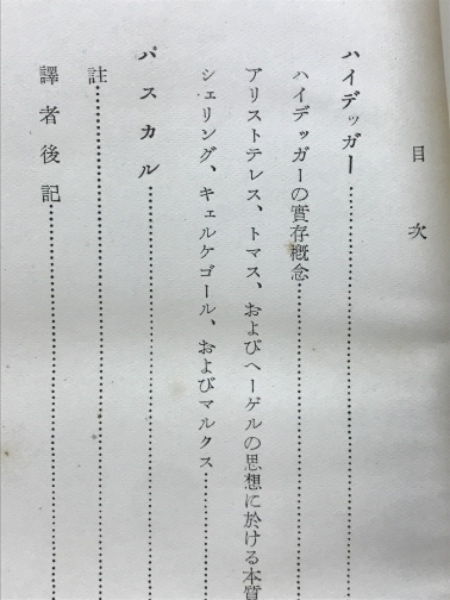 目次
ハイデッガー
ハイデッガーの實存槪念
アリストテレス、トマス、およびヘーゲルの思想に於ける本質
シェリング、キェルケゴール、およびマルクス
パスカル
註
譯者後記